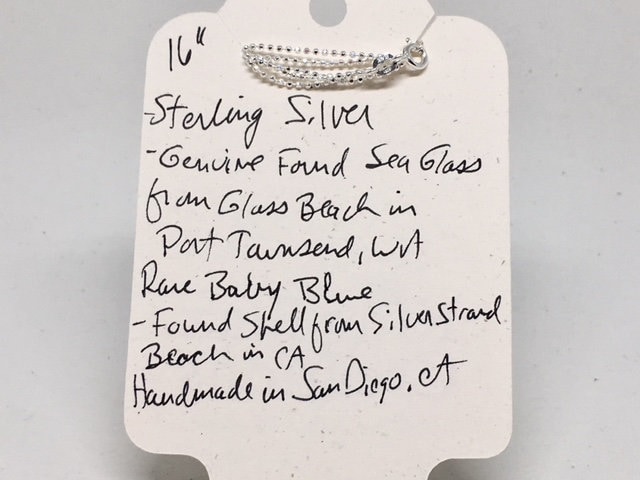 16"
-Sterling Silver
-Genuine Found Sea Glass
from Glass Beach in
Port Townsend, WA
Rare Baby Blue
-Found Shell from Silver Strand
Beach in CA
Handmade in San Diego, CA